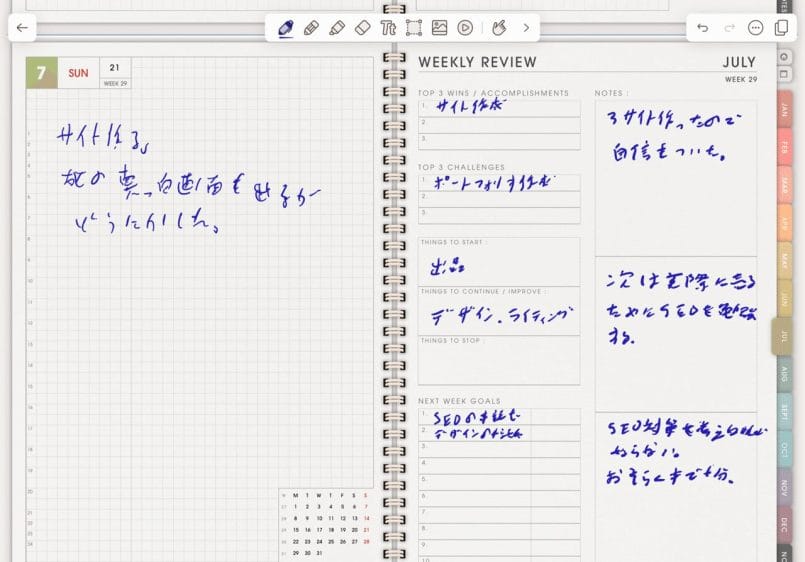 7
SUN
21
WEEK 29
サイト作る。
画面を出るが
どうにかした。
WEEKLY REVIEW
JULY
WEEK 29
TOP 3 WINS / ACCOMPLISHMENTS
1. サイト作成
2.
3.
TOP 3 CHALLENGES
1. ポートフォリオ作成
2.
3.
THINGS TO START :
出品
THINGS TO CONTINUE / IMPROVE :
デザイン、ライティング
THINGS TO STOP :
NEXT WEEK GOALS
1. SEOの本読む
2. デザインの本読む
3.
4.
5.
6.
7.
8.
9.
10.
NOTES :
3サイト作ったので
自信をついた。
次は実際に売る
ためにSEOを勉強
する。
SEO対策を考えなければ
ならない。
おそらく本で十分。
M T W T F S S
1 2 3 4 5 6 7
8 9 10 11 12 13 14
15 16 17 18 19 20 21
22 23 24 25 26 27 28
29 30 31
JAN
FEB
MAR
APR
MAY
JUN
JUL
AUG
SEPT
OCT
NOV
DEC